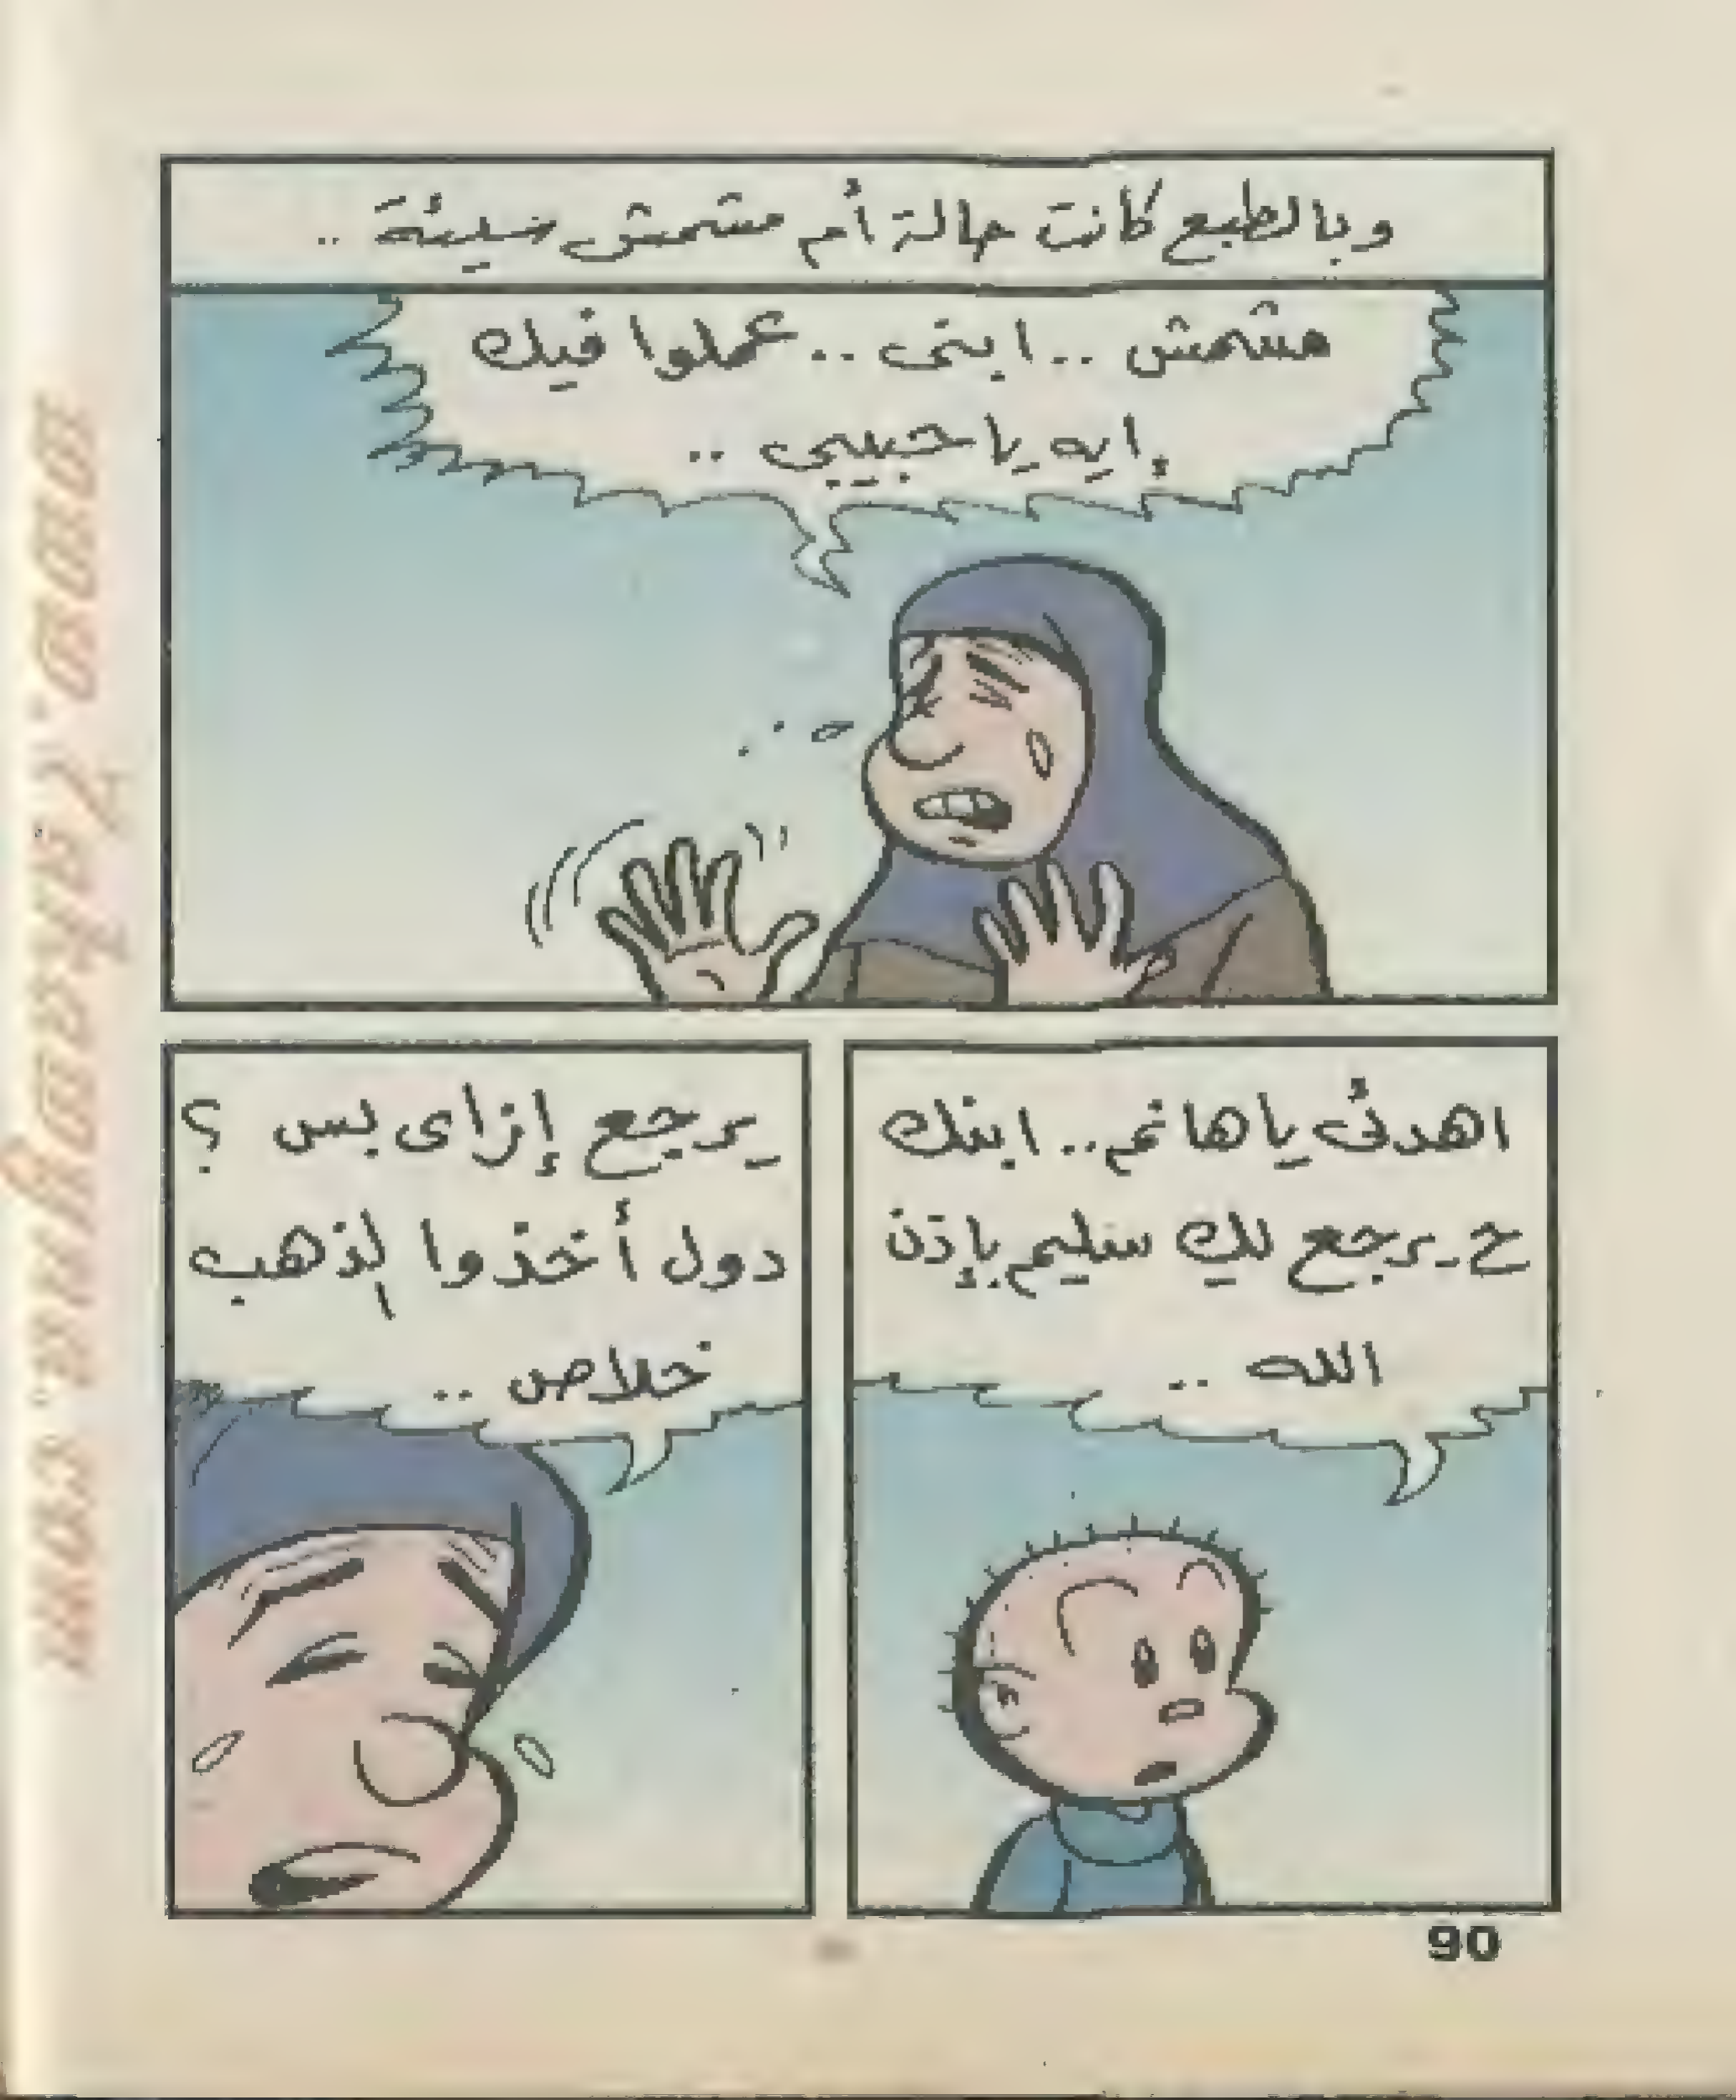 وبالطبع كانت حالة أم مشمش سيئة ..
مشمش .. ابنى .. عملوا فيك
إيه يا حبيبى ..
اهدئى ياهانم .. ابنك
ح يرجع لك سليم بإذن
الله ..
يرجع إزاى بس ؟
دول أخذوا الذهب
خلاص ..
90